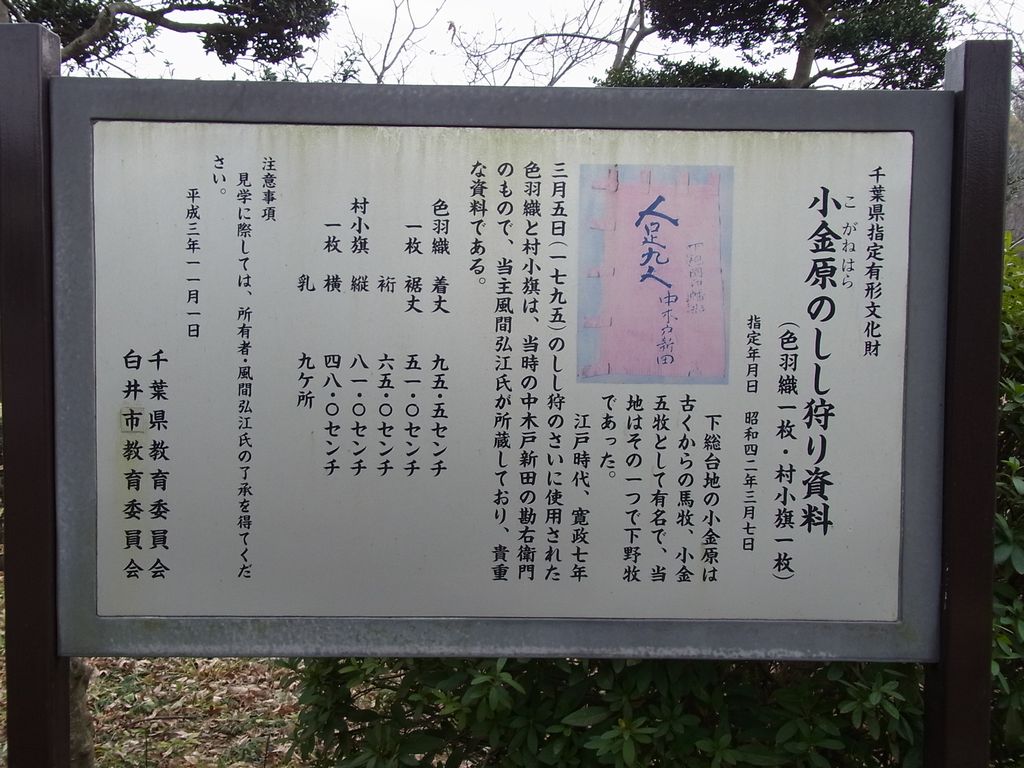 千葉県指定有形文化財
こがねはら
小金原のしし狩り資料
(色羽織一枚・村小旗一枚)
指定年月日 昭和四二年三月七日
下総台地の小金原は
古くからの馬牧、小金
五牧として有名で、当
地はその一つで下野牧
であった。
江戸時代、寛政七年
三月五日(一七九五)のしし狩のさいに使用された
色羽織と村小旗は、当時の中木戸新田の勘右衛門
のもので、当主風間弘江氏が所蔵しており、貴重
な資料である。
人足九人
中木戸新田
色羽織 着丈 九五・五センチ
一枚 裾丈 五一・〇センチ
裄 六五・〇センチ
村小旗 縦 八一・〇センチ
一枚 横 四八・〇センチ
乳 九ケ所
注意事項
見学に際しては、所有者・風間弘江氏の了承を得てくだ
さい。
平成三年一一月一日
千葉県教育委員会
白井市教育委員会